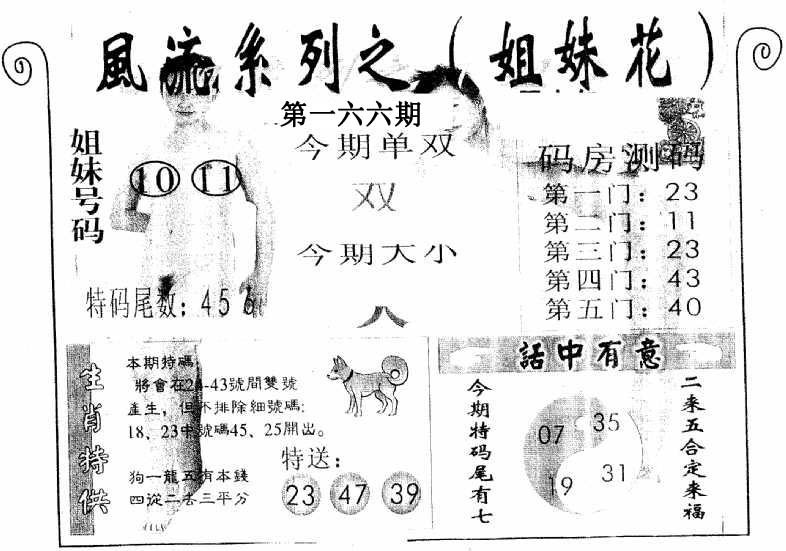 風流系列之（姐妹花）
第一六六期
姐妹号码
10 11
特码尾数：456
今期单双
双
今期大小
码房测码
第一门：23
第二门：11
第三门：23
第四门：43
第五门：40
生肖特供
本期特碼
將會在24-43號間雙號
產生，但不排除細號碼:
18、23中號碼45、25開出。
狗一龍五有本錢
四從二去三平分
特送：
23 47 39
話中有意
今期特码尾有七
07 35
19 31
二来五合定来福